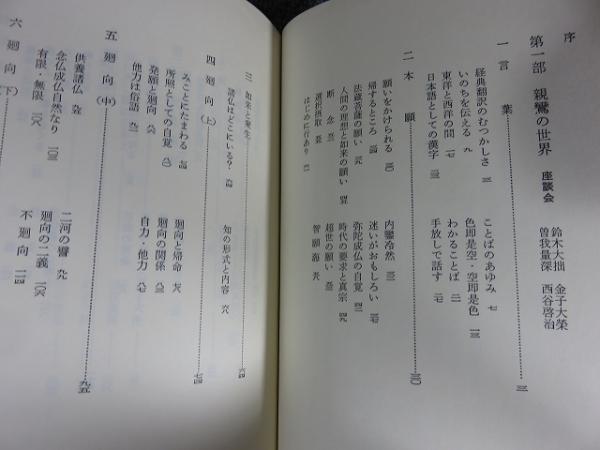 序
第一部 親鸞の世界 座談会
鈴木大拙 金子大榮
曽我量深 西谷啓治
一 言葉
経典翻訳のむつかしさ 三
ことばのあゆみ 七
いのちを伝える 九
色即是空・空即是色 一三
東洋と西洋の間 一七
わかることば 二一
日本語としての漢字
手放しで話す
二 本願 三〇
願いをかけられる 三〇
内鑒冷然
帰するところ
迷いがおもしろい
法蔵菩薩の願い
弥陀成仏の自覚
人間の理想と如来の願い
時代の要求と真宗
断念
超世の願い
選択摂取
智願海
はじめに行あり
三 如来と衆生 六四
諸仏はどこにいる? 六四
知の形式と内容 六八
四 廻向(上) 七四
みことにたまわる
廻向と帰命 七六
所照としての自覚 八〇
廻向の関係
発願と廻向
自力・他力 八七
他力は俗語 九一
五 廻向(中) 九五
供養諸仏
二河の譬 九九
念仏成仏自然なり 一〇三
廻向の二義 一〇六
有限・無限 一〇八
不廻向 一一四
六 廻向(下)